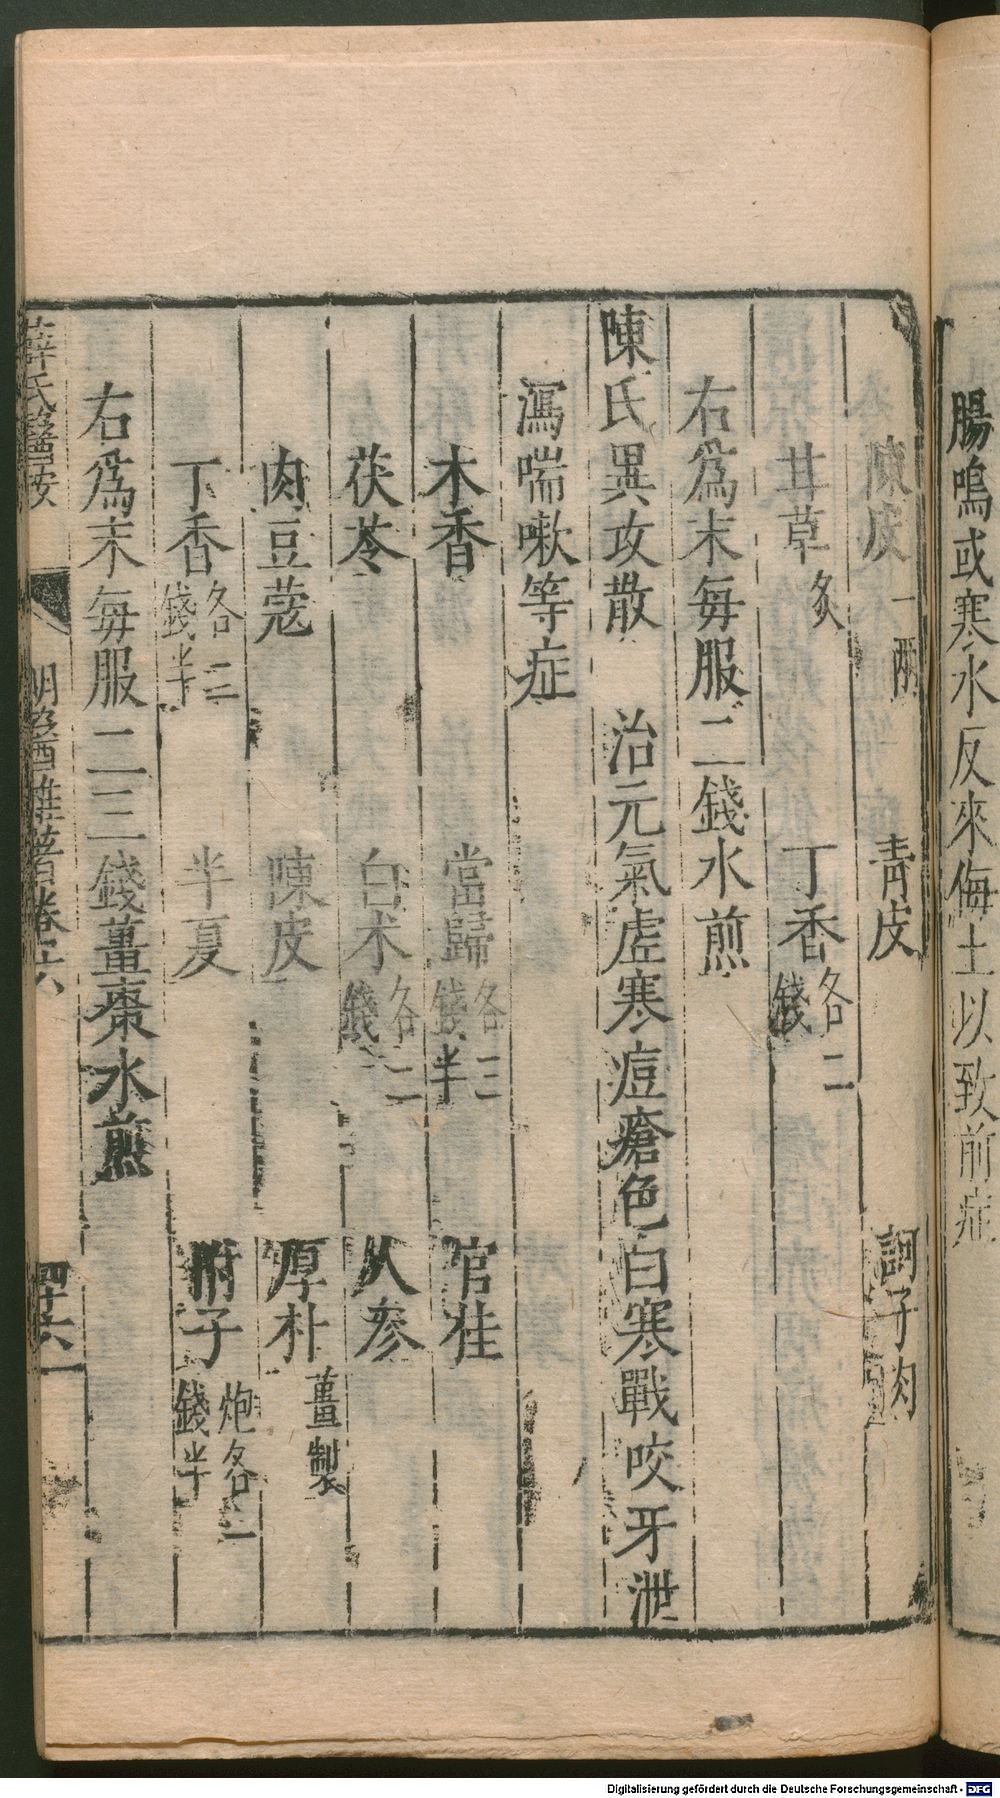 腸鳴或寒水反來侮土以致前症
陳皮一兩　青皮　訶子肉
甘草炙　丁香各二錢
右爲末每服二錢水煎
陳氏異攻散　治元氣虛寒痘瘡色白寒戰咬牙泄
瀉喘嗽等症
木香　當歸各三錢半　官桂
茯苓　白朮各二錢　人參
肉豆蔻　陳皮　厚朴薑製
丁香各三錢半　半夏　附子炮各一錢半
右爲末每服二三錢薑棗水煎
薛氏醫按　明醫雜著卷六　四十六
Digitalisierung gefördert durch die Deutsche Forschungsgemeinschaft - DFG